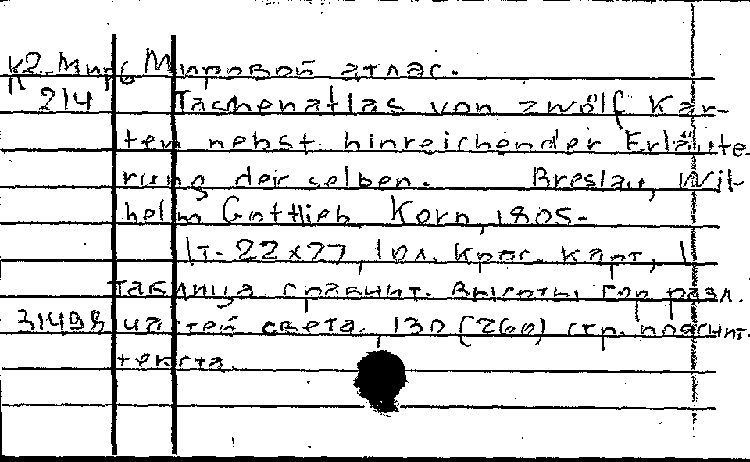 К2-Миръ Мировой атлас.
214 Taschenatlas von zwölf Kar-
ten nebst hinreichender Erläute
rung der selben. Breslau, Wil-
helm Gottlieb Korn, 1805-
1т. 22x27, 10л. крас. карт, 1
таблица сравнит. высоты гор разл.
31498 частей света. 130 (260) стр. пояснит.
текста.